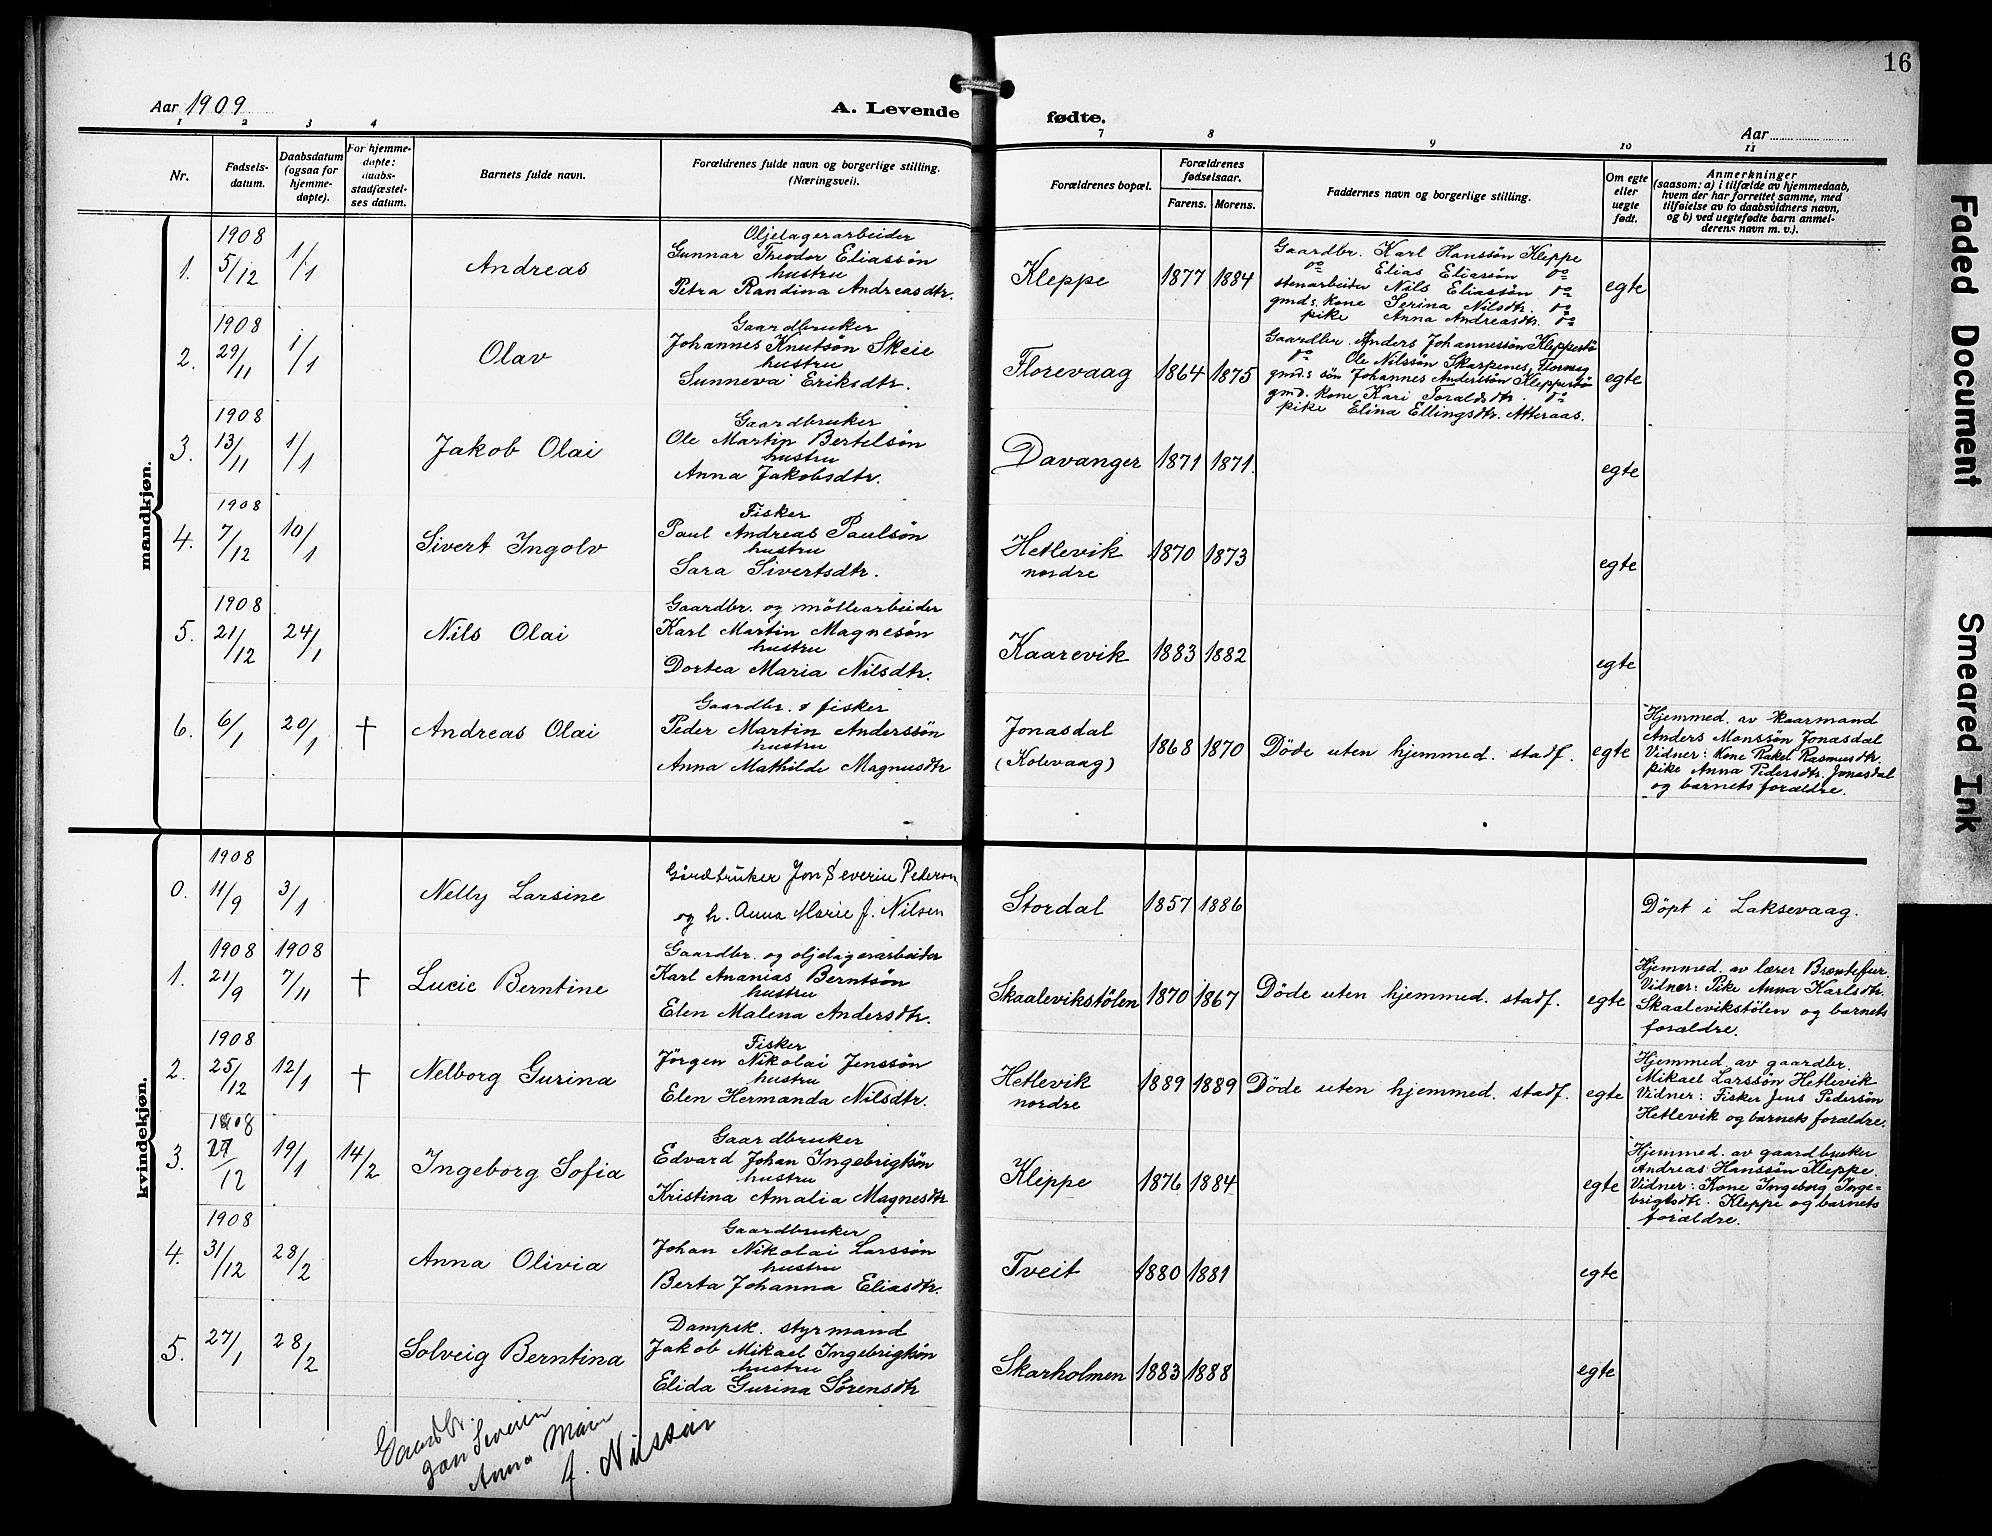 16
Aar 1909
A. Levende fødte.
Aar
1 2 3 4 7 8 9 10 11
Nr.
Fødsels-
datum.
Daabsdatum
(ogsaa for
hjemme-
døpte).
For hjemme-
døpte:
daabs-
stadfæstel-
ses datum.
Barnets fulde navn.
Forældrenes fulde navn og borgerlige stilling.
(Næringsvei).
Forældrenes bopæl.
Forældrenes
fødselsaar.
Farens. Morens.
Faddernes navn og borgerlige stilling.
Om egte
eller
uegte
født.
Anmerkninger
(saasom: a) i tilfælde av hjemmedaab,
hvem der har forrettet samme, med
tilføielse av to daabsvidners navn,
og b) ved uegtefødte barn anmel-
derens navn m. v.).
mandkjøn.
1.
1908
5/12
1/1
Andreas
Oljelagerarbeider
Gunnar Theodor Eliassøn
hustru
Petra Randina Andreasdtr.
Kleppe
1877 1884
Gaardbr. Karl Hanssøn Kleppe
do Elias Eliassøn do
stenarbeider Nils Eliassøn do
gmds. kone Serina Nilsdtr. do
pike Anna Andreasdtr. do
egte
2.
1908
29/11
1/1
Olav
Gaardbruker
Johannes Knutsøn Skeie
hustru
Sunneva Eriksdtr.
Florevaag
1864 1875
Gaardbr. Anders Johannessøn Kleppestø
do Ole Nilssøn Skarpenes, Florvag
gmd.s søn Johannes Anderssøn Kleppestø
gmd. kone Kari Toraldsdtr. do
pike Elina Ellingsdtr. Atteraas.
egte
3.
1908
13/11
1/1
Jakob Olai
Gaardbruker
Ole Martin Bertelsøn
hustru
Anna Jakobsdtr.
Davanger
1871 1871.
egte
4.
1908
7/12
10/1
Sivert Ingolv
Fisker
Paul Andreas Paulsøn
hustru
Sara Sivertsdtr.
Hetlevik
nordre
1870 1873
egte
5.
1908
21/12
24/1
Nils Olai
Gaardbr. og møllearbeider
Karl Martin Magnesøn
hustru
Dortea Maria Nilsdtr.
Kaarevik
1883 1882
egte
6.
6/1
20/1
†
Andreas Olai
Gaardbr. & fisker
Peder Martin Anderssøn
hustru
Anna Mathilde Magnusdtr
Jonasdal
(Kolevaag)
1868 1870
Døde uten hjemmed. stadf.
egte
Hjemmed. av kaarmand
Anders Monssøn Jonasdal
Vidner: Kone Rakel Rasmusdtr.
pike Anna Pedersdtr. Jonasdal
og barnets forældre.
kvindekjøn.
0.
1908
11/9
3/1
Nelly Larsine
Gårdbruker Jon Severin Pederson
og h. Anna Marie f. Nilsen
Stordal
1857 1886
Døpt i Laksevaag.
1.
1908
21/9
1908
7/11
†
Lucie Berntine
Gaardbr. og oljelagerarbeiter
Karl Ananias Berntsøn
hustru
Elen Malena Andersdtr.
Skaalevikstølen
1870 1867
Døde uten hjemmed. stadf.
egte
Hjemmed. av lærer Bræntefur.
Vidner: Pike Anna Karlsdtr.
Skaalevikstølen og barnets
forældre.
2.
1908
25/12
12/1
†
Nelborg Gurina
Fisker
Jørgen Nikolai Jenssøn
hustru
Elen Hermanda Nilsdtr.
Hetlevik
nordre
1889 1889
Døde uten hjemmed. stadf.
egte
Hjemmed. av gaardbr.
Mikael Larssøn Hetlevik
Vidner: Fisker Jens Pedersøn
Hetlevik og barnets forældre.
3.
1908
/12
19/1
14/2
Ingeborg Sofia
Gaardbruker
Edvard Johan Ingebrigtsøn
hustru
Kristina Amalia Magnesdtr
Kleppe
1876 1884
egte
Hjemmed. av gaardbruker
Andreas Hanssøn Kleppe.
Vidner: Kone Ingeborg Inge-
brigtsdtr. Kleppe og barnets
forældre.
4.
1908
31/12
28/2
Anna Olivia
Gaardbruker
Johan Nikolai Larssøn
hustru
Berta Johanna Eliasdtr.
Tveit
1880 1881
egte
5.
27/1
28/2
Solveig Berntina
Dampsk. styrmand
Jakob Mikael Ingebrigtsøn
hustru
Elida Gurina Sørensdtr
Skarholmen
1883 1888
egte
Gaardbr.
Jon Severin
Anna Marie
f. Nilssøn
Faded Document
Smeared Ink